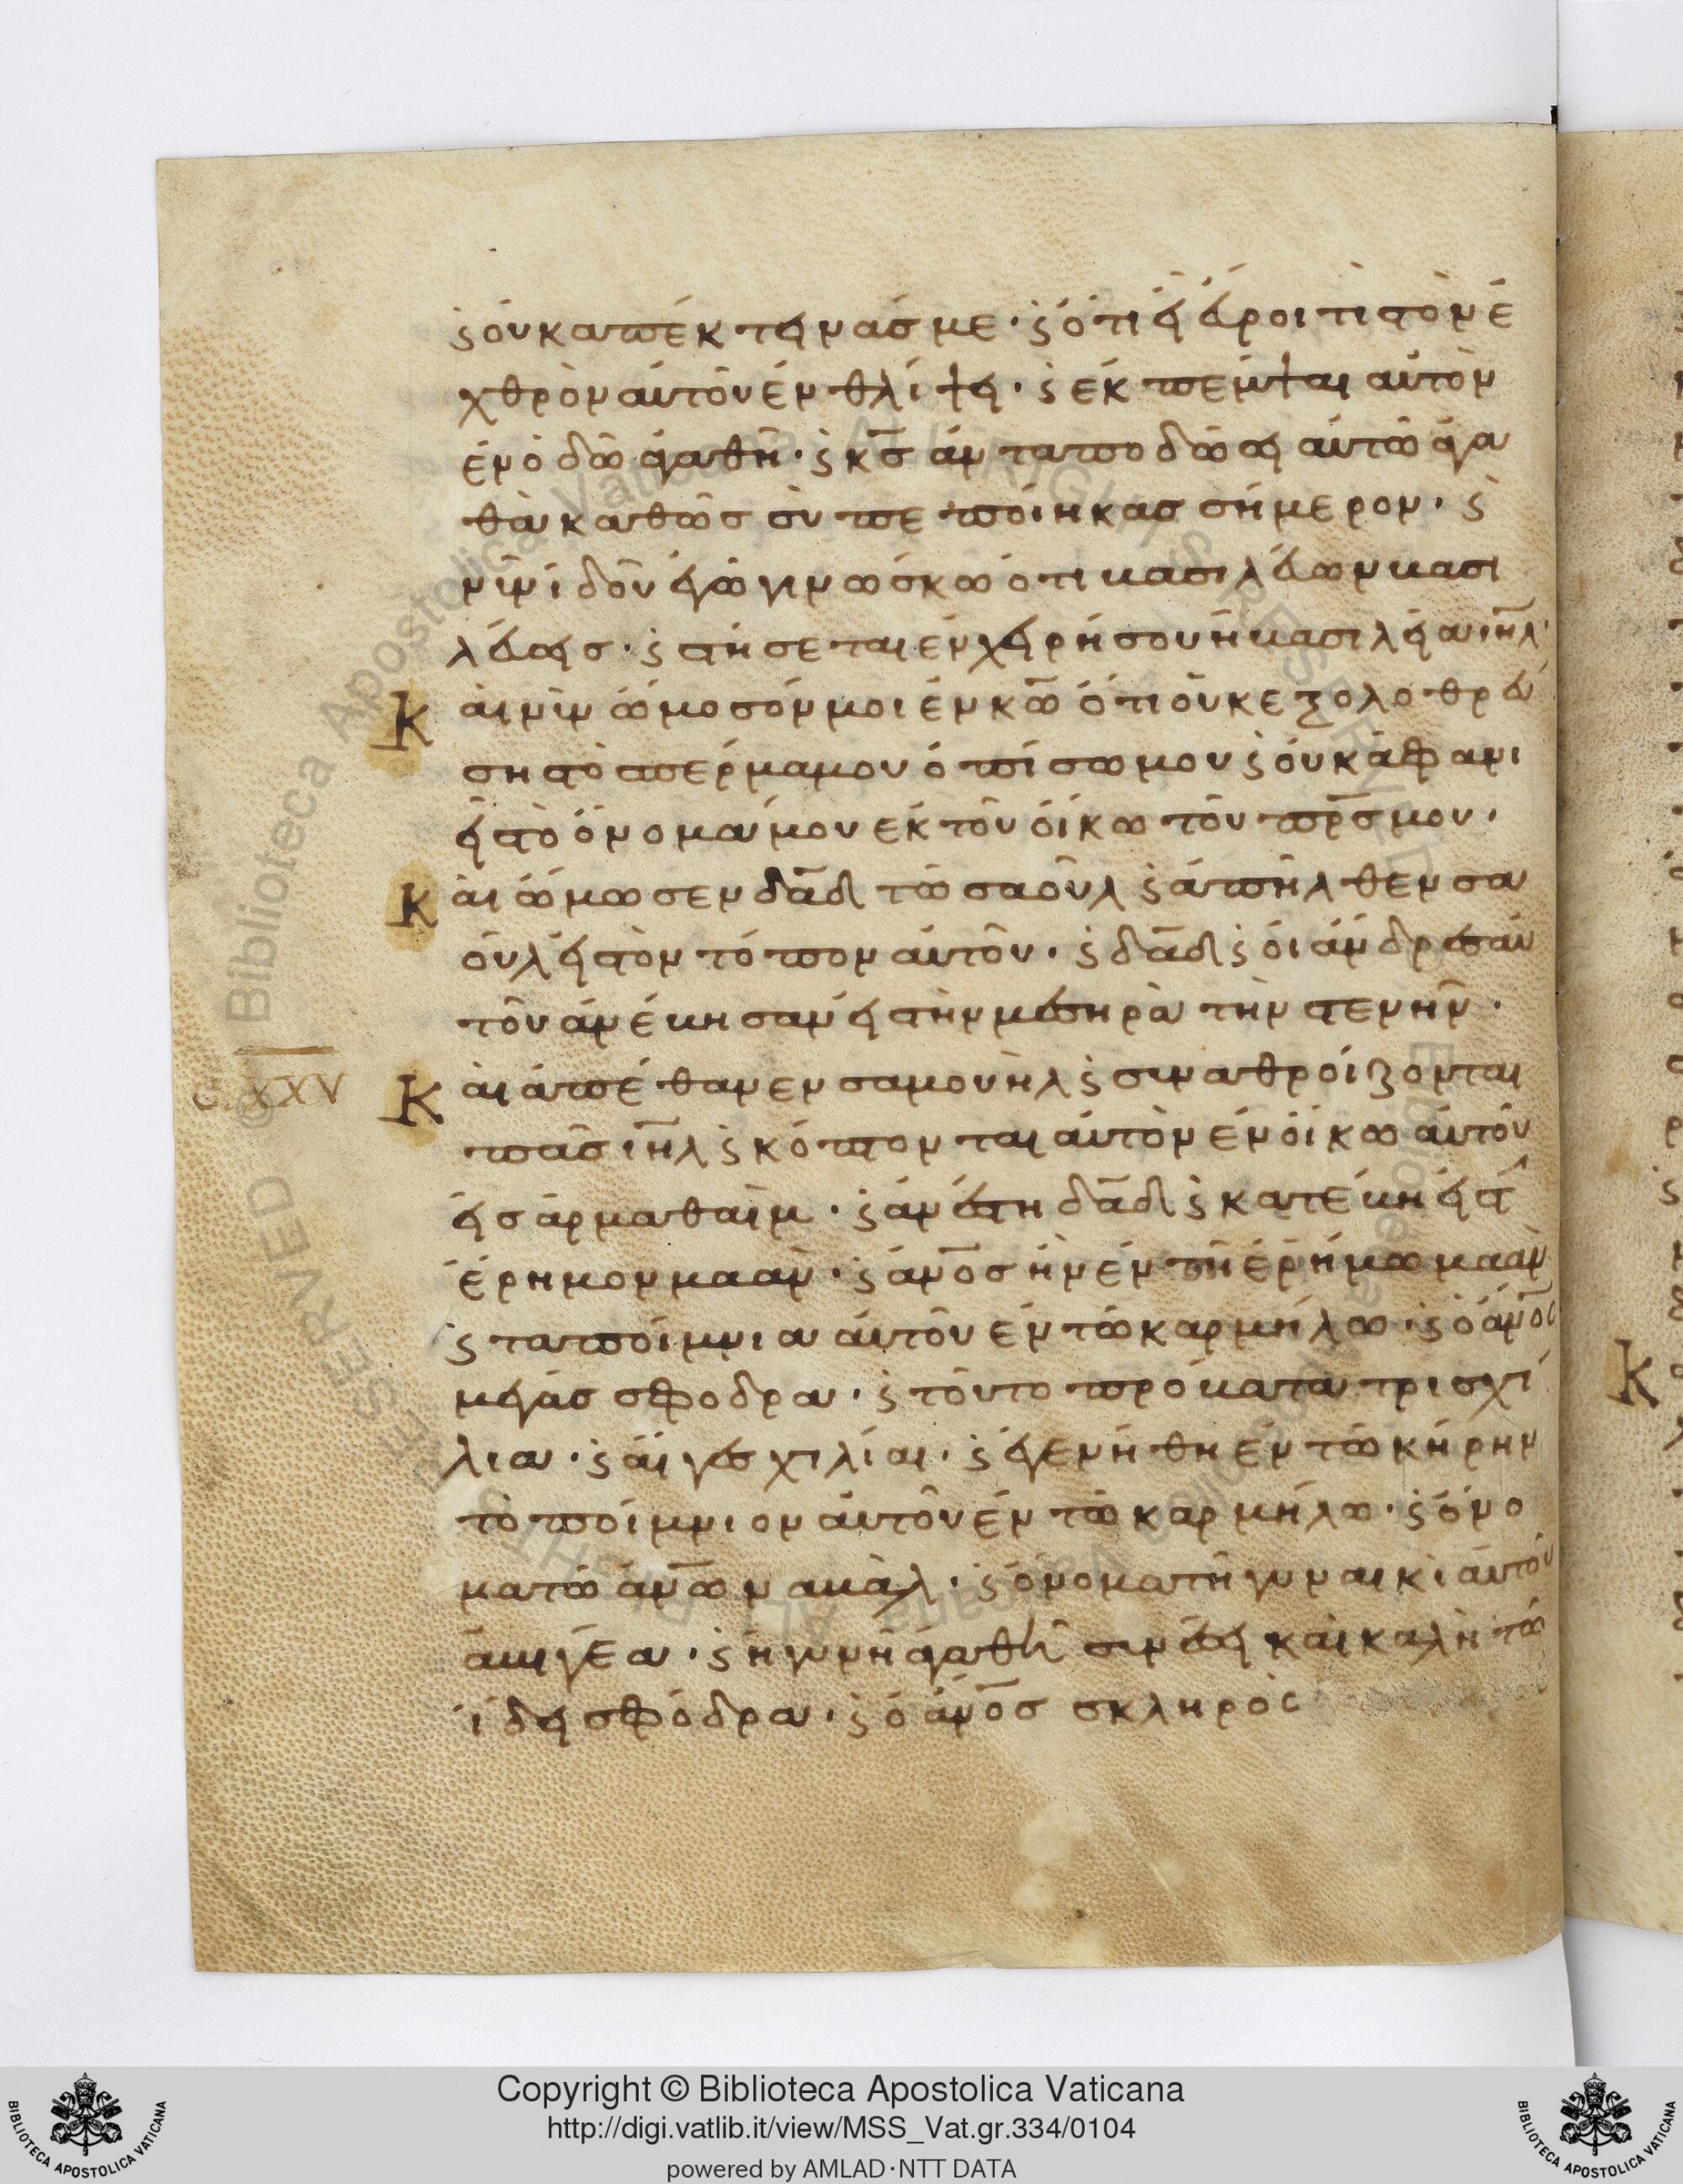 ϛ οὐκ ἀπέκτεινάς με· ϛ ὅτι εἰ εὕροι τὶς τὸν ἐ
χθρὸν αὐτοῦ ἐν θλίψει· ϛ ἐκπέμψαι αὐτὸν
ἐν ὁδῶ ἀγαθῆ· ϛ κ̅ς̅ ἀνταποδώσει αὐτῶ ἀγα
θὰ καθὼς σὺ πεποίηκας σήμερον· ϛ
νῦν ἰδοῦ ἐγὼ γινώσκω ὅτι βασιλεύων βασι
λεύσεις· ϛ στήσεται ἐν χειρί σου ἡ βασιλεία ι̅η̅λ̅·
Και νῦν ὤμοσόν μοι ἐν κ̅ω̅ ὅτι οὐκ ἐξολοθρεύ
σης τὸ σπέρμα μου ὀπίσω μου ϛ οὐκ ἀφανι
εῖς τὸ ὄνομά μου ἐκ τοῦ οἴκου τοῦ π̅ρ̅ς̅ μου·
Καὶ ὤμωσεν δ̅α̅δ̅ τῶ σαοῦλ ϛ ἀπῆλθεν σα
οὺλ εἰς τὸν τόπον αὐτοῦ· ϛ δ̅α̅δ̅ ϛ οἱ ἄνδρες αὐ
τοῦ ἀνέβησαν εἰς τὴν μεσηρὰ τὴν στενήν·
c. XXV
Καὶ ἀπέθανεν σαμουὴλ ϛ συναθροίζονται
πᾶς ι̅η̅λ̅ ϛ κόπτονται αὐτὸν ἐν οἴκω αὐτοῦ
εἰς ἀρμαθαὶμ· ϛ ἀνέστη δ̅α̅δ̅ ϛ κατέβη εἰς τ
ἔρημον μααν· ϛ ἀν̅ος̅ ἦν ἐν τῆ ἐρήμω μααν
ϛ τα ποίμνια αὐτοῦ ἐν τῶ καρμήλω· ϛ ὁ ἀν̅ος̅
μέγας σφοδρα· ϛ τοῦτο πρόβατα τρισχί
λια· ϛ αἶγες χιλίαι· ϛ ἐγενήθη ἐν τῶ κήρην
τὸ ποίμνιον αὐτοῦ ἐν τῶ καρμήλω· ϛ ὄνο
μα τῶ ἀν̅ω̅ ναβὰλ· ϛ ὄνομα τῆ γυναικὶ αὐτοῦ
ἀβιγέα· ϛ ἡ γυνὴ ἀγαθὴ συνέσει καὶ καλὴ τῶ
ἴδει σφόδρα· ϛ ὁ ἀν̅ος̅ σκληρὸς
Copyright © Biblioteca Apostolica Vaticana
http://digi.vatlib.it/view/MSS_Vat.gr.334/0104
powered by AMLAD·NTT DATA
BIBLIOTECA APOSTOLICA VATICANA
BIBLIOTECA APOSTOLICA VATICANA